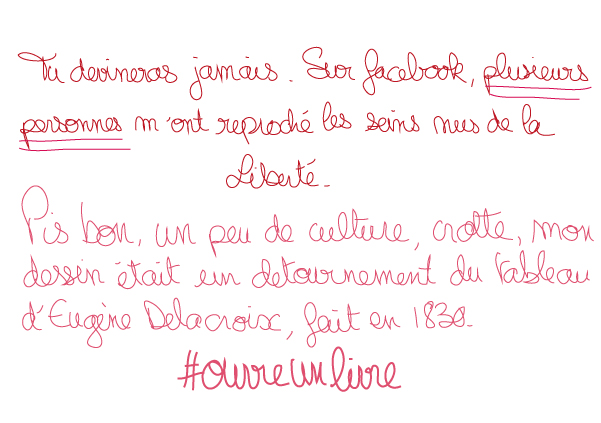 Tu devineras jamais. Sur facebook, plusieurs
personnes m'ont reproché les seins nus de la
Liberté.
Pis bon, un peu de culture, crotte, mon
dessin était un detournement du Tableau
d'Eugène Delacroix, fait en 1830.
#ouvreunlivre